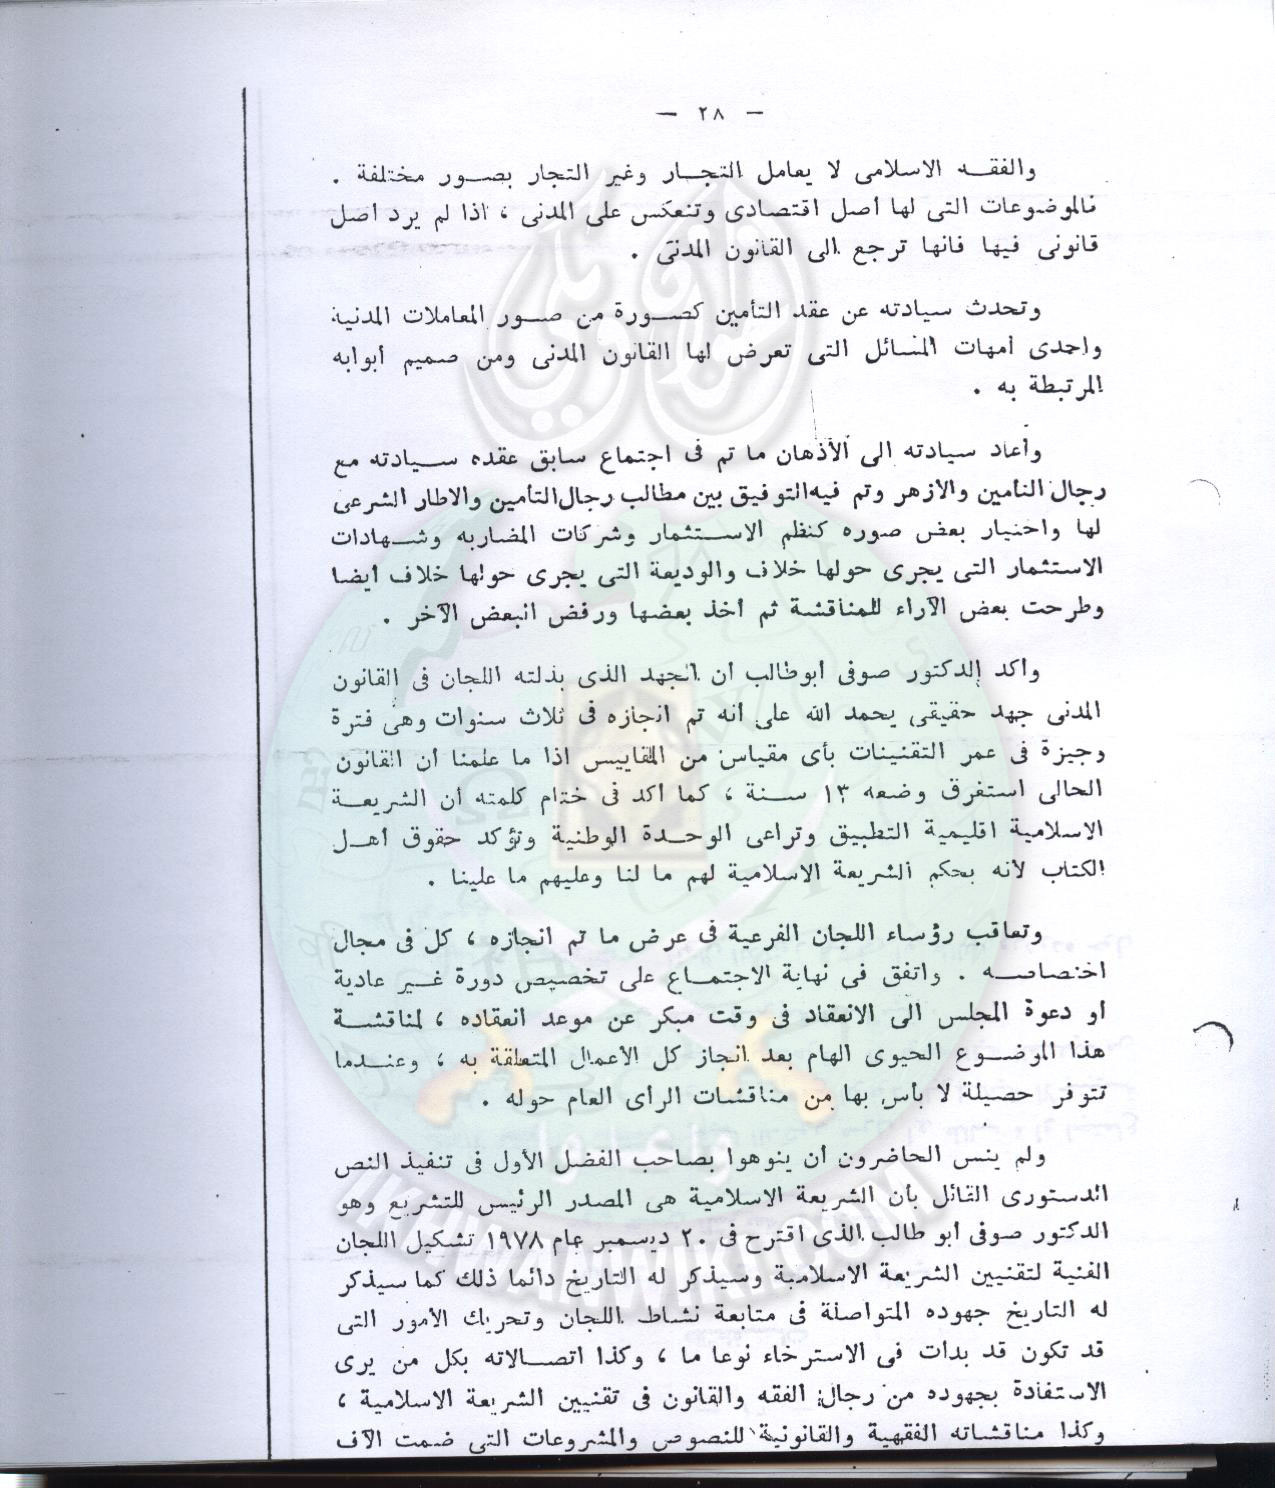 — ٢٨ —
والفقه الاسلامى لا يعامل التجار وغير التجار بصور مختلفة .
فالموضوعات التى لها أصل اقتصادى وتنعكس على المدنى ، اذا لم يرد اصل
قانونى فيها فانها ترجع الى القانون المدنى .
وتحدث سيادته عن عقد التأمين كصورة من صور المعاملات المدنية
واحدى أمهات المسائل التى تعرض لها القانون المدنى ومن صميم أبوابه
المرتبطة به .
وأعاد سيادته الى الأذهان ما تم فى اجتماع سابق عقده سيادته مع
رجال التأمين والازهر وتم فيه التوفيق بين مطالب رجال التأمين والاطار الشرعى
لها واختيار بعض صوره كنظم الاستثمار وشركات المضاربه وشهادات
الاستثمار التى يجرى حولها خلاف والوديعة التى يجرى حولها خلاف أيضا
وطرحت بعض الآراء للمناقشة ثم أخذ بعضها ورفض البعض الآخر .
وأكد الدكتور صوفى أبو طالب أن الجهد الذى بذلته اللجان فى القانون
المدنى جهد حقيقى يحمد الله على أنه تم انجازه فى ثلاث سنوات وهى فترة
وجيزة فى عمر التقنينات بأى مقياس من المقاييس اذا ما علمنا أن القانون
الحالى استغرق وضعه ١٣ سنة ، كما أكد فى ختام كلمته أن الشريعة
الاسلامية اقليمية التطبيق وتراعى الوحدة الوطنية وتؤكد حقوق أهل
الكتاب لأنه بحكم الشريعة الاسلامية لهم ما لنا وعليهم ما علينا .
وتعاقب رؤساء اللجان الفرعية فى عرض ما تم انجازه ، كل فى مجال
اختصاصه . واتفق فى نهاية الاجتماع على تخصيص دورة غير عادية
أو دعوة المجلس الى الانعقاد فى وقت مبكر عن موعد انعقاده ، لمناقشة
هذا الموضوع الحيوى الهام بعد انجاز كل الأعمال المتعلقة به ، وعندما
تتوفر حصيلة لا بأس بها من مناقشات الرأى العام حوله .
ولم ينس الحاضرون أن ينوهوا بصاحب الفضل الأول فى تنفيذ النص
الدستورى القائل بأن الشريعة الاسلامية هى المصدر الرئيس للتشريع وهو
الدكتور صوفى أبو طالب الذى اقترح فى ٢٠ ديسمبر عام ١٩٧٨ تشكيل اللجان
الفنية لتقنيين الشريعة الاسلامية وسيذكر له التاريخ دائما ذلك كما سيذكر
له التاريخ جهوده المتواصلة فى متابعة نشاط اللجان وتحريك الأمور التى
قد تكون قد بدأت فى الاسترخاء نوعا ما ، وكذا اتصالاته بكل من يرى
الاستفادة بجهوده من رجال الفقه والقانون فى تقنيين الشريعة الاسلامية ،
وكذا مناقشاته الفقهية والقانونية للنصوص والمشروعات التى ضمت الآف
IKHWANWIKI.COM